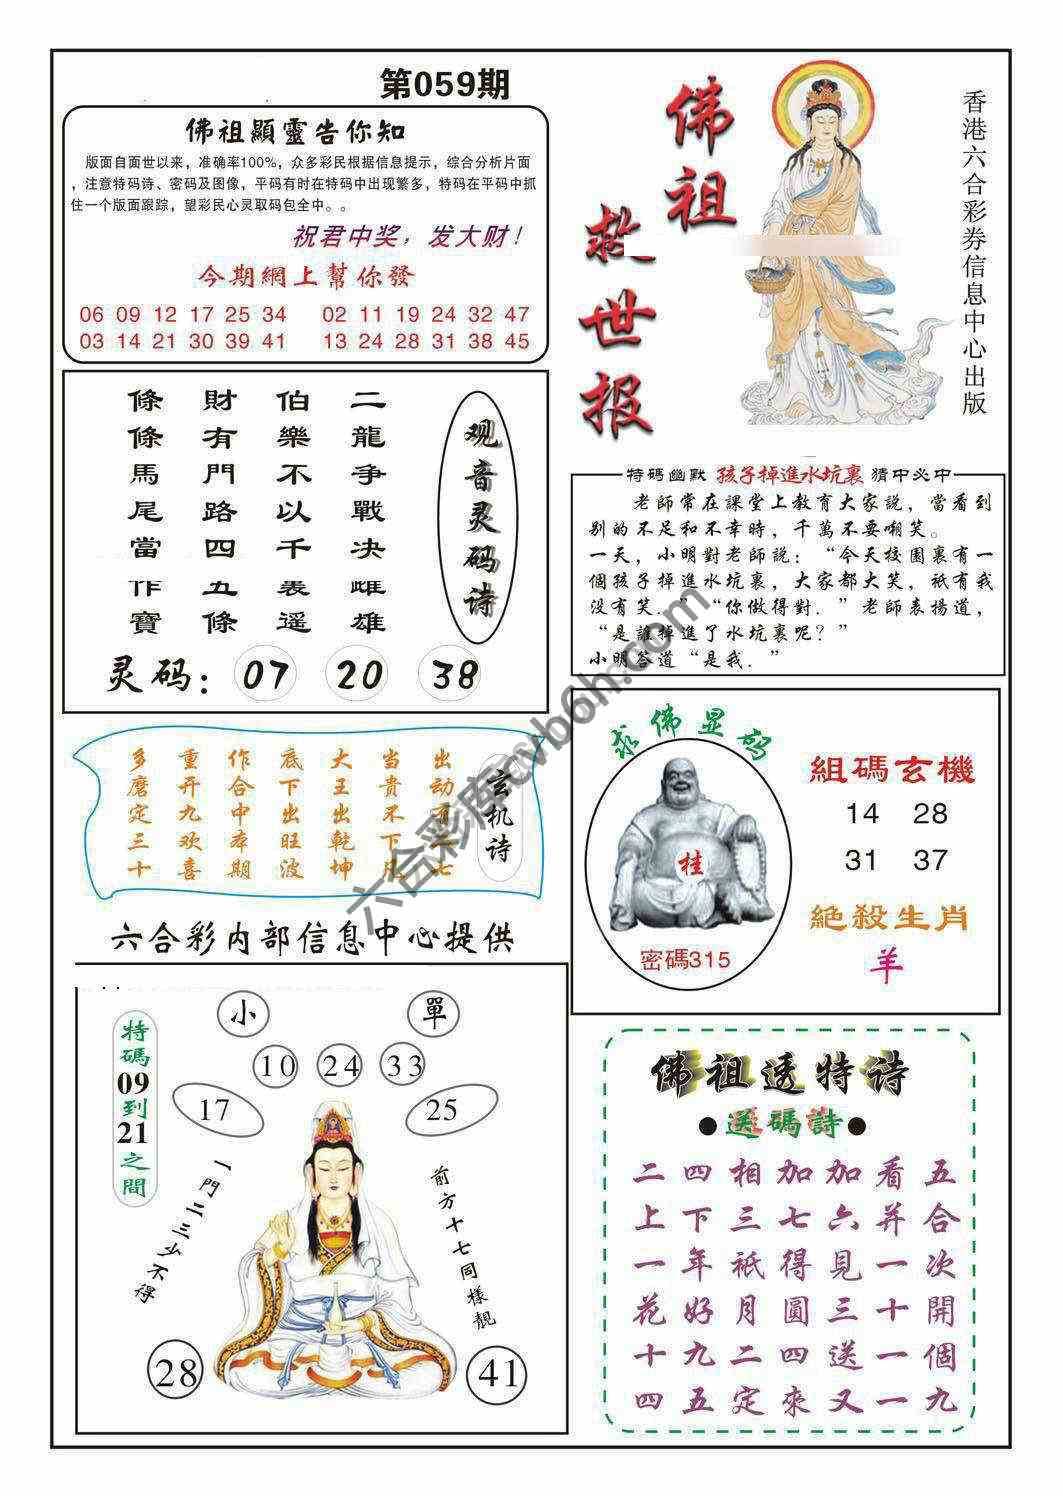 第059期
佛祖顯靈告你知
版面自面世以来，准确率100%，众多彩民根据信息提示，综合分析片面
，注意特码诗、密码及图像，平码有时在特码中出现繁多，特码在平码中抓
住一个版面跟踪，望彩民心灵取码包全中。。
祝君中奖，发大财！
今期網上幫你發
06 09 12 17 25 34 02 11 19 24 32 47
03 14 21 30 39 41 13 24 28 31 38 45
佛祖
救世报
香港六合彩券信息中心出版
观音灵码诗
二龍争戰决雌雄
伯樂不以千裏遥
財有門路四五條
條條馬尾當作寶
灵码：07 20 38
特碼幽默 孩子掉進水坑裏 猜中必中
老師常在課堂上教育大家説，當看到
别的不足和不幸時，千萬不要嘲笑。
一天，小明對老師説：“今天校園裏有一
個孩子掉進水坑裏，大家都大笑，衹有我
没有笑．”“你做得對．”老師表揚道，
“是誰掉進了水坑裏呢？”
小明答道“是我．”
玄机诗
出动有二七
当贵不下凡
大王出乾坤
底下出旺波
作合中本期
重开九欢喜
多磨定三十
六合彩内部信息中心提供
求佛显码
桂
密碼315
組碼玄機
14 28
31 37
絶殺生肖
羊
特碼09到21之間
小 單
10 24 33
17 25
一門二三少不得
前方十七同樣靚
28 41
佛祖透特诗
●送碼詩●
二四相加加看五
上下三七六并合
一年衹得見一次
花好月圓三十開
十九二四送一個
四五定來又一九
六合彩库cvb6h.com